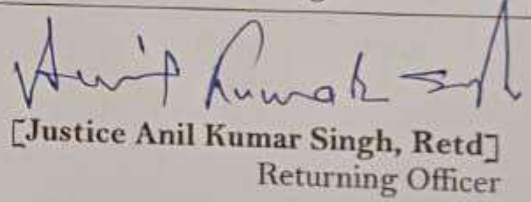 Anil Kumar Singh
[Justice Anil Kumar Singh, Retd]
Returning Officer